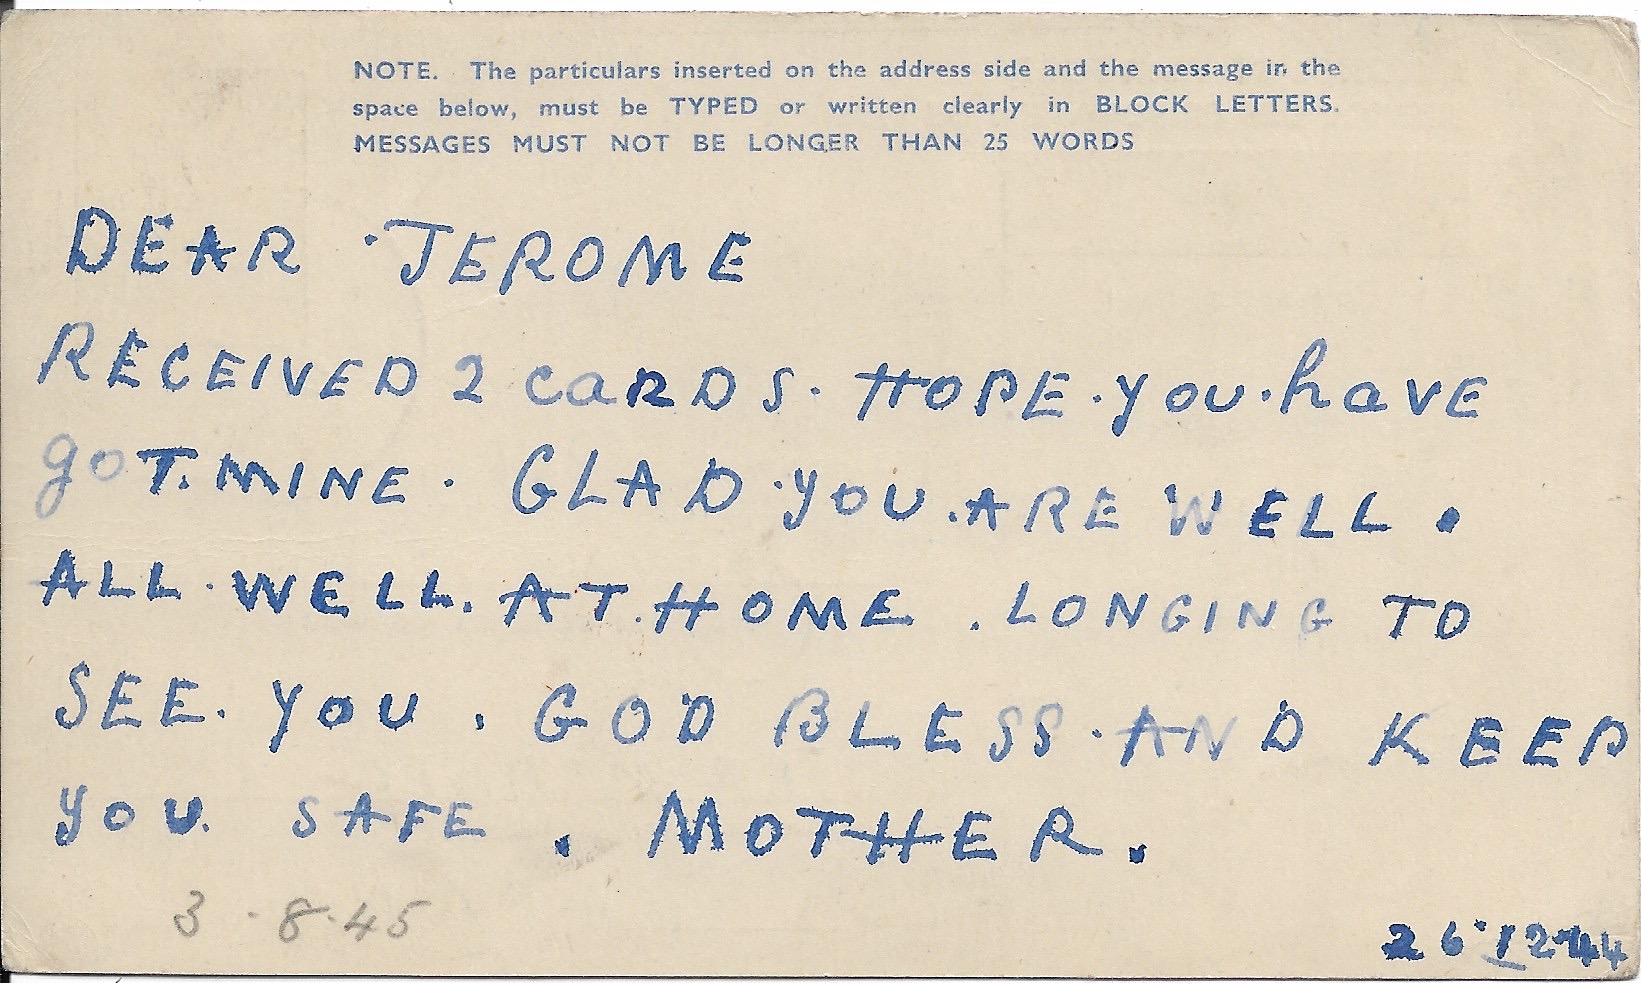 NOTE. The particulars inserted on the address side and the message in the
space below, must be TYPED or written clearly in BLOCK LETTERS.
MESSAGES MUST NOT BE LONGER THAN 25 WORDS
DEAR JEROME
RECEIVED 2 CaRDS. HOPE.YOU.haVE
goT.MINE. GLAD.YOU.ARE WELL.
ALL.WELL.AT.HOME. LONGING TO
SEE.YOU. GOD BLESS.AND KEEP
YOU. SAFE. MOTHER.
3.8.45
26.12.44